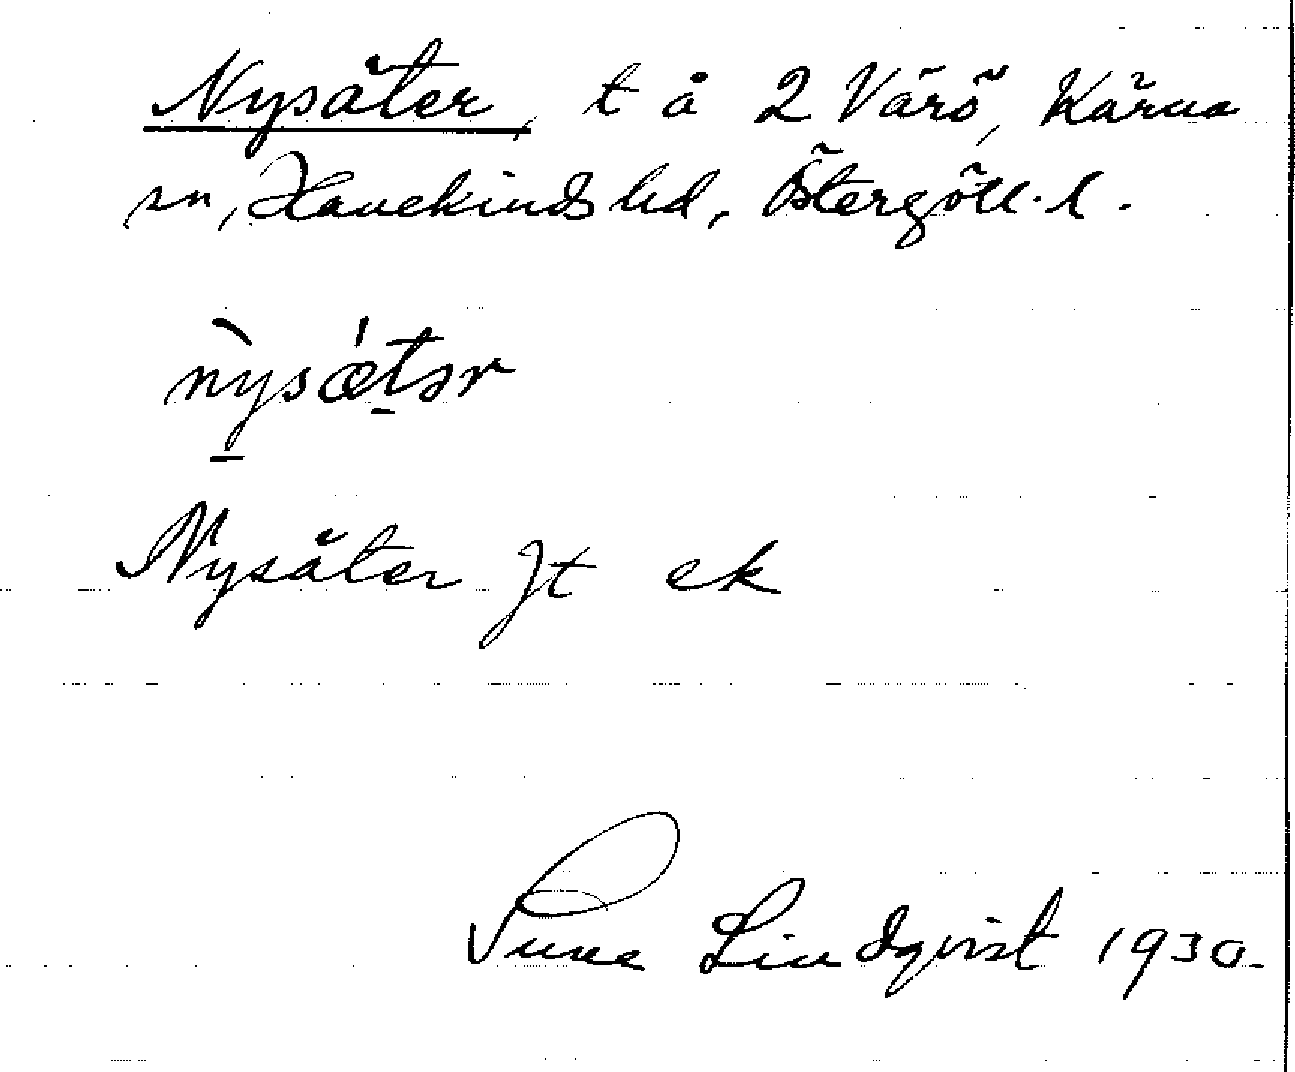 Nysäter, t å 2 Värö, Kärna
sn, Hanekinds hd, Östergötl. l.
nysǽtər
Nysäter Jt ek
Sune Lindqvist 1930.